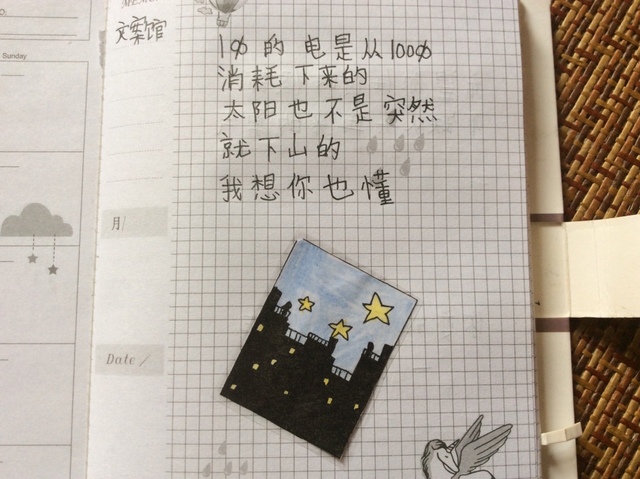 Sunday
文案馆
1φ 的 电是从100φ
消耗下来的
太阳也不是突然
就下山的
我想你也懂
月/
Date /